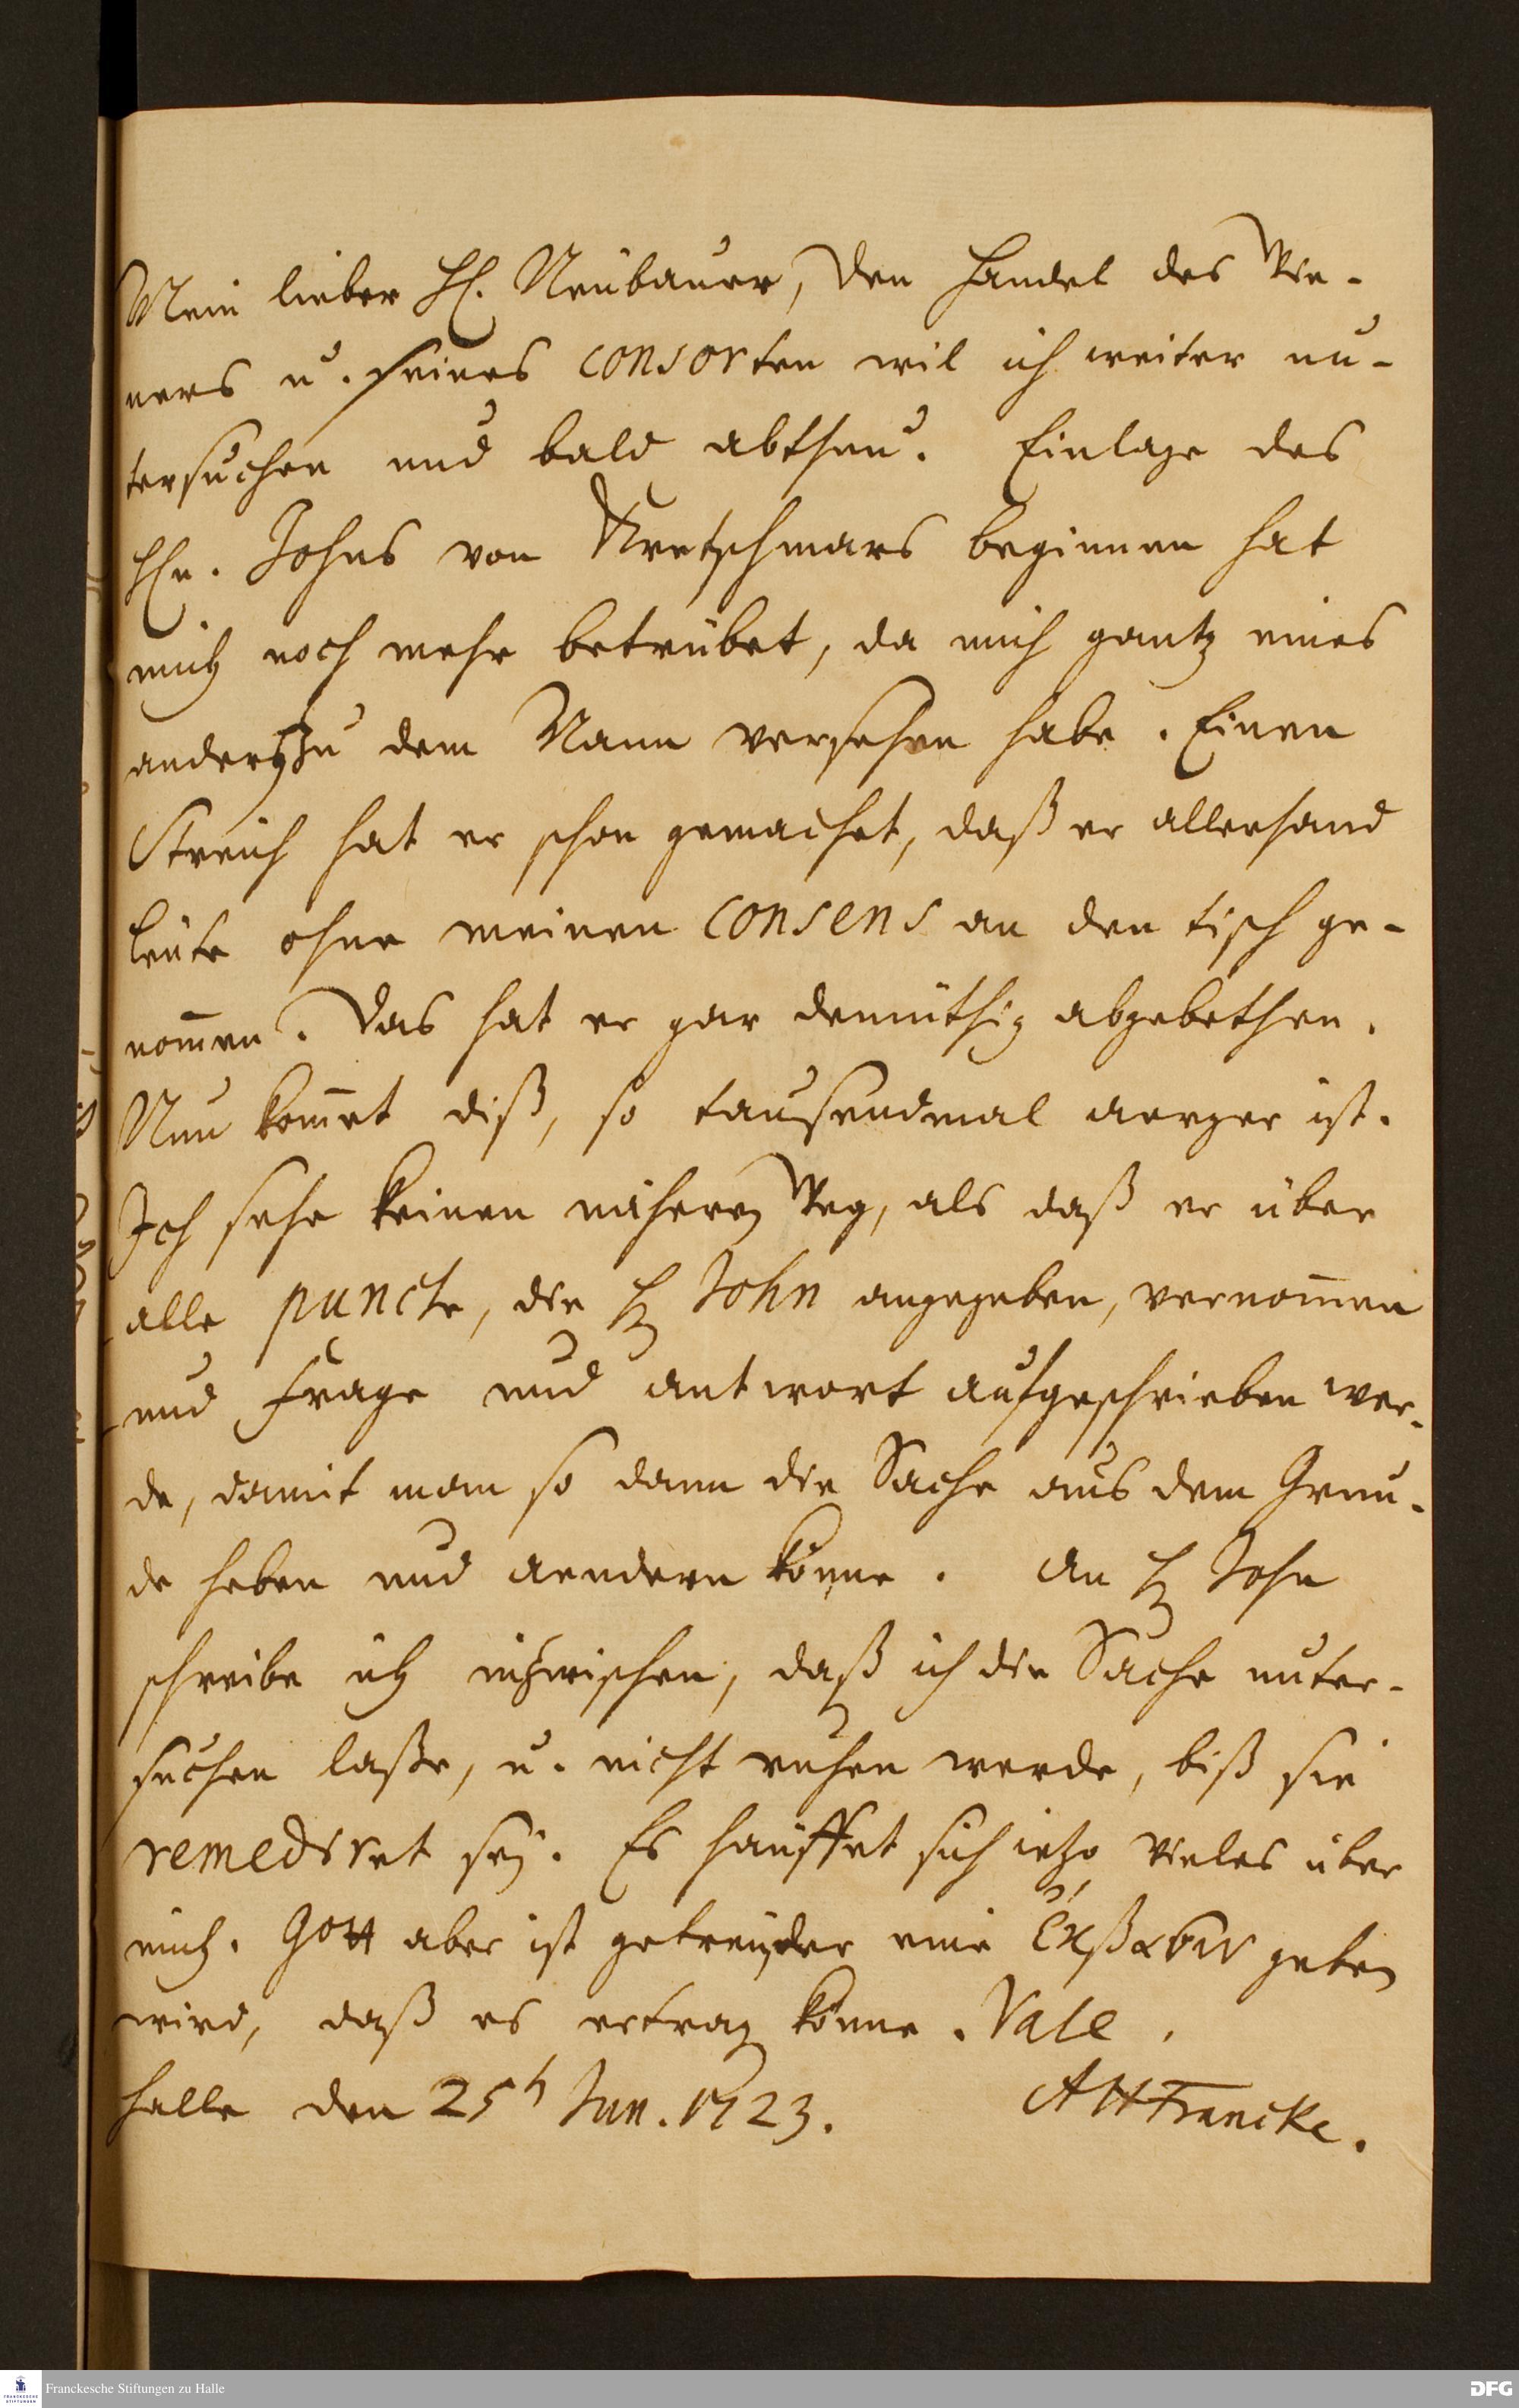 Mein lieber H. Neubauer, den Handel des We-
ners u. seines consorten wil ich weiter un-
tersuchen und bald abthun. Einlage des
Hn. Johns von Kretschmars beginnen hat
mich noch mehr betrübet, da mich gantz eines
anders zu dem Mann versehen habe. Einen
Streich hat er schon gemachet, daß er allerhand
leute ohne meinen consens an den tisch ge-
nom̄en. Das hat er gar demüthig abgebethen.
Nun kom̄et diß, so tausendmal aerger ist.
Ich sehe keinen nähern Weg, als daß er über
alle puncte, die H John angegeben, vernom̄en
und Frage und antwort aufgeschrieben wer-
de, damit man so dann die Sache aus dem Grun-
de heben und aendern könne. An H John
schreibe ich inzwischen, daß ich die Sache unter-
suchen laße, u. nicht ruhen werde, biß sie
remediret sey. Es häuffet sich ietzo vieles über
mich. Gott aber ist getreu, der eine ἔκβασιν geben
wird, daß es ertrag könne. Vale.
Halle den 25 Jun. 1723. AHFrancke.
Franckesche Stiftungen zu Halle
DFG